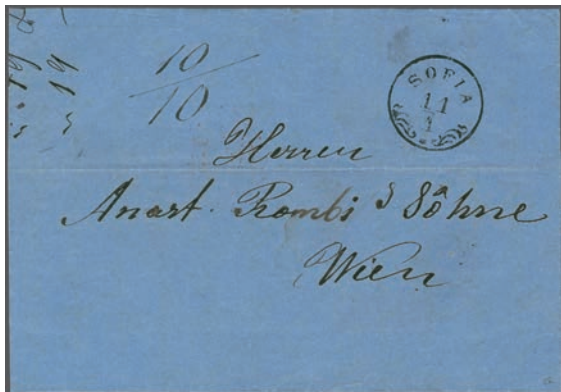 10
10
SOFIA
11
1
Herren
Anast. Rombi & Söhne
Wien
19